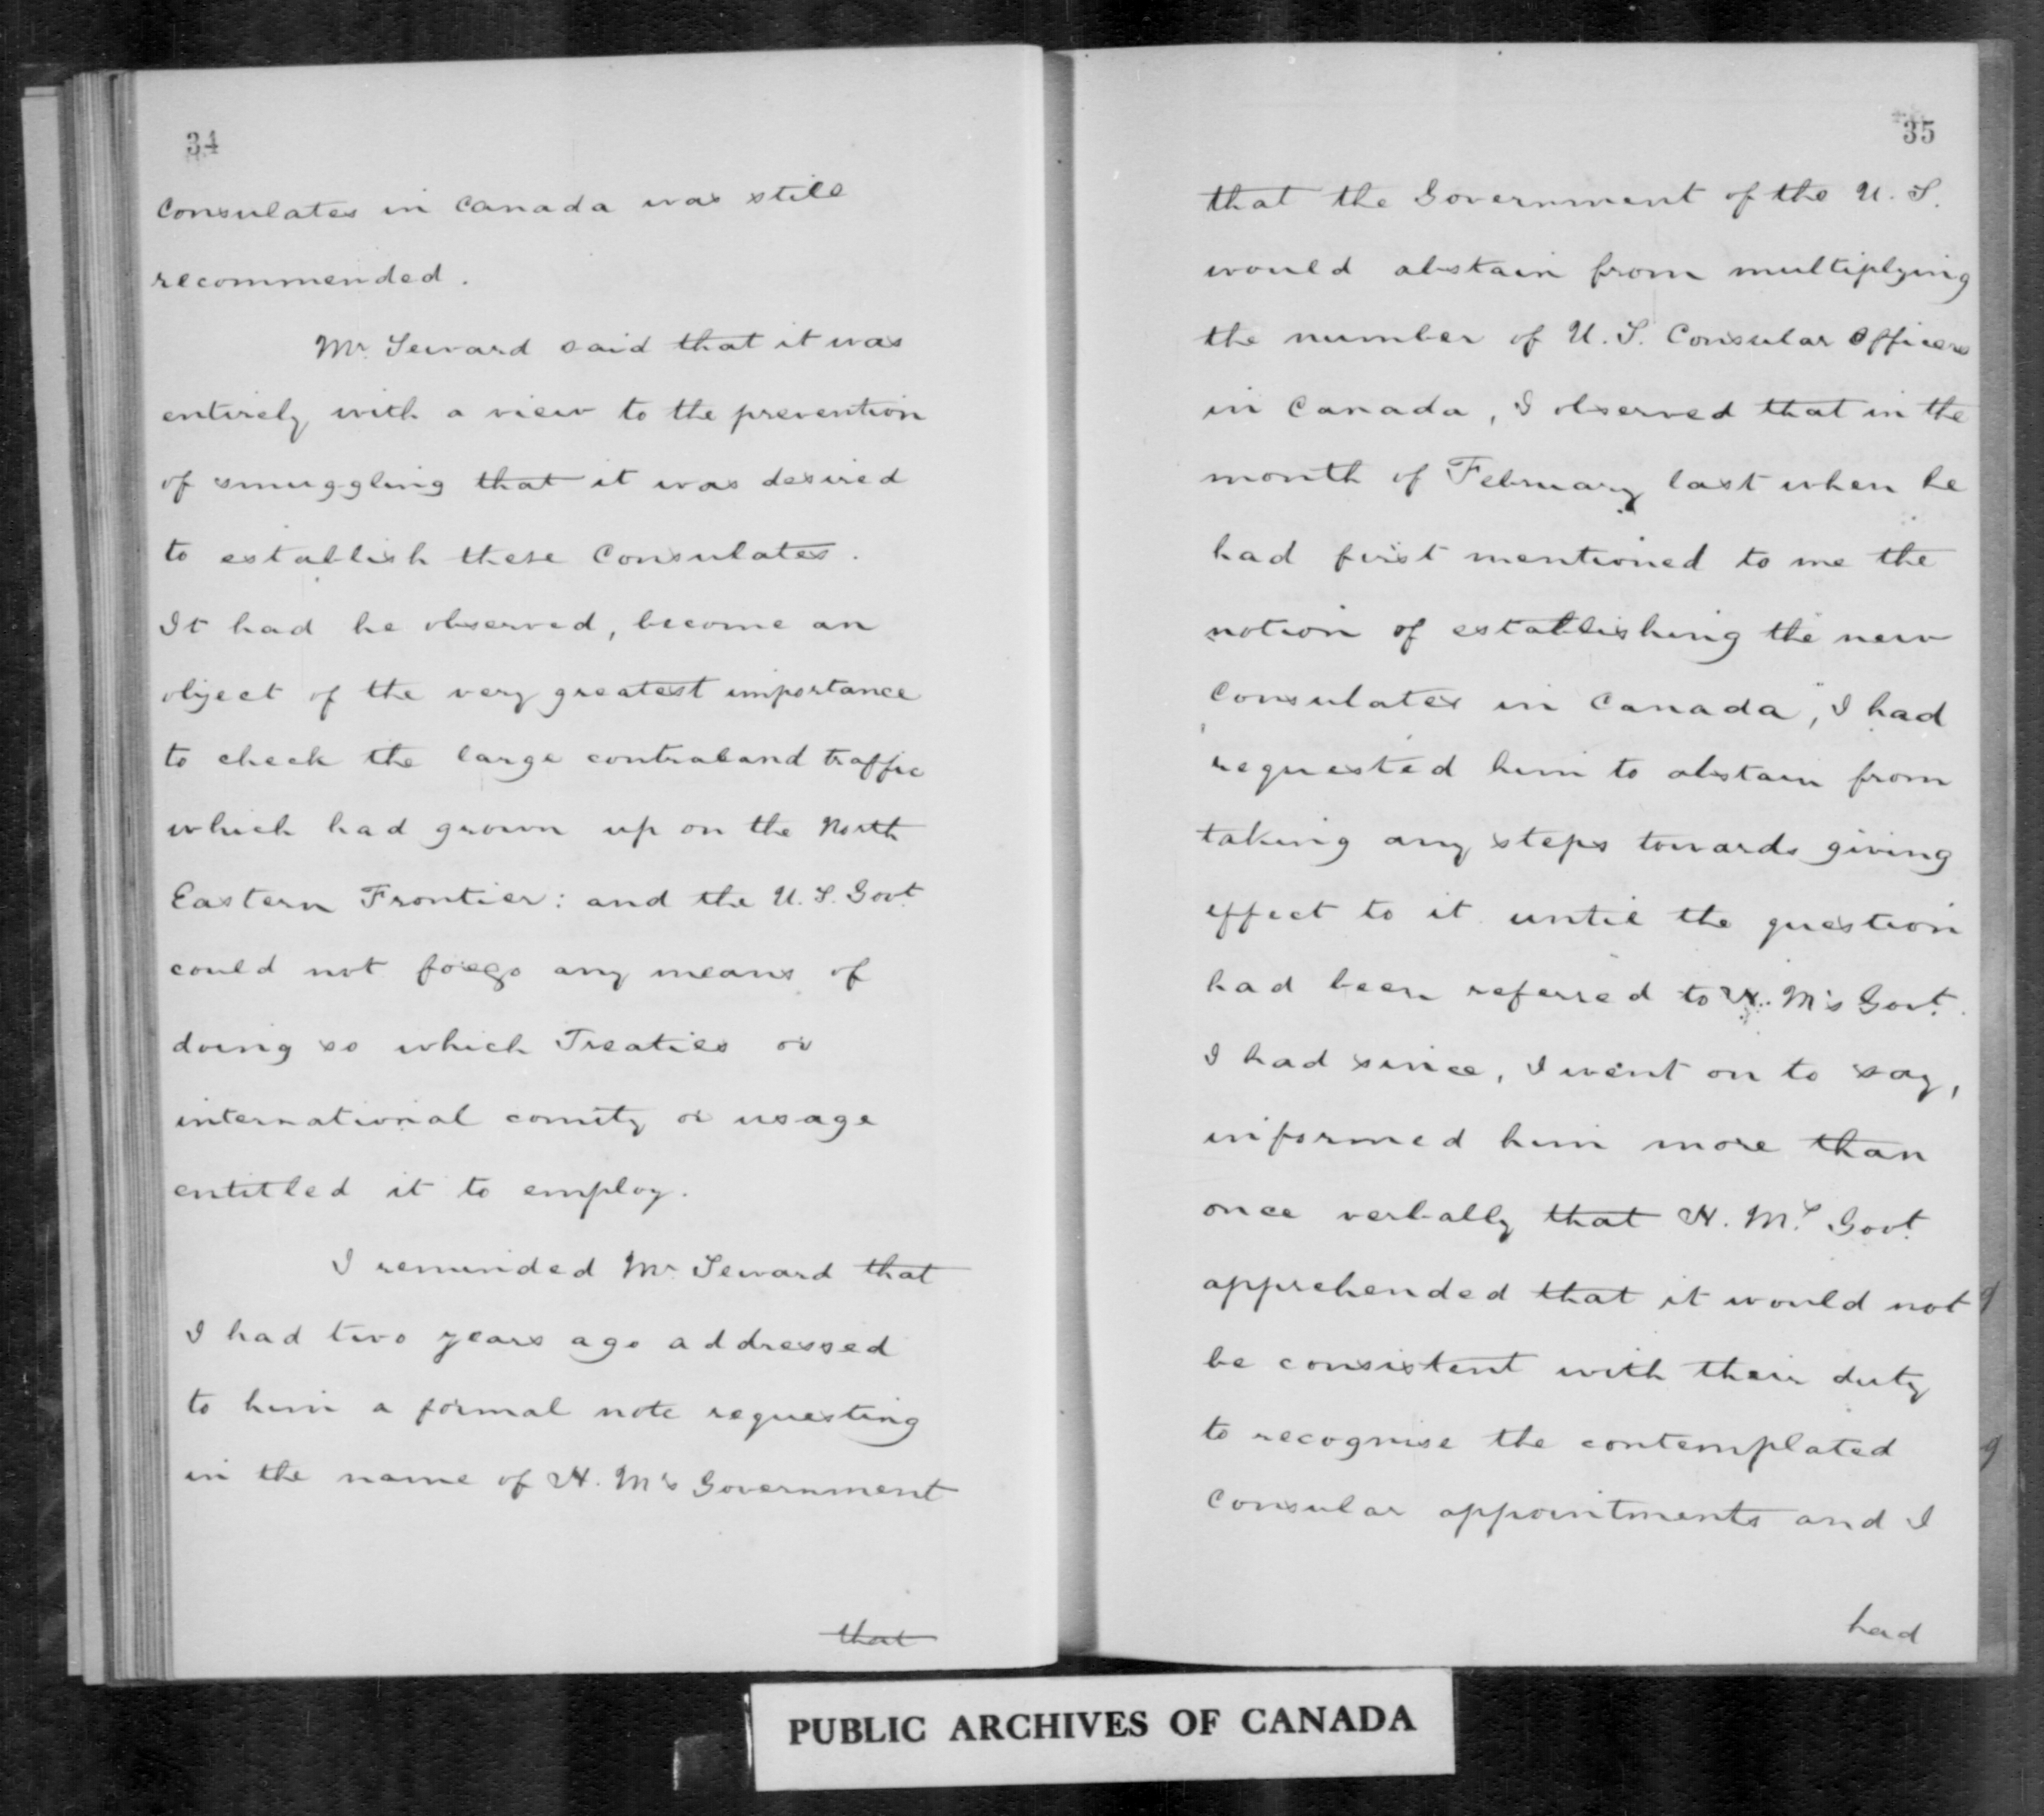 34
Consulates in Canada was still
recommended.
Mr. Seward said that it was
entirely with a view to the prevention
of smuggling that it was desired
to establish these Consulates.
It had he observed, become an
object of the very greatest importance
to check the large contraband traffic
which had grown up on the North
Eastern Frontier: and the U.S. Govt.
could not forego any means of
doing so which Treaties or
international comity or usage
entitled it to employ.
I reminded Mr. Seward that
I had two years ago addressed
to him a formal note requesting
in the name of H. M's Government
that
35
that the Government of the U. S.
would abstain from multiplying
the number of U. S. Consular Officers
in Canada, I observed that in the
month of February last when he
had first mentioned to me the
notion of establishing the new
Consulates in Canada, I had
requested him to abstain from
taking any steps towards giving
effect to it until the question
had been referred to H. M's Govt.
I had since, I went on to say,
informed him more than
once verbally that H. M's Govt.
apprehended that it would not
be consistent with their duty
to recognise the contemplated
Consular appointments and I
had
PUBLIC ARCHIVES OF CANADA